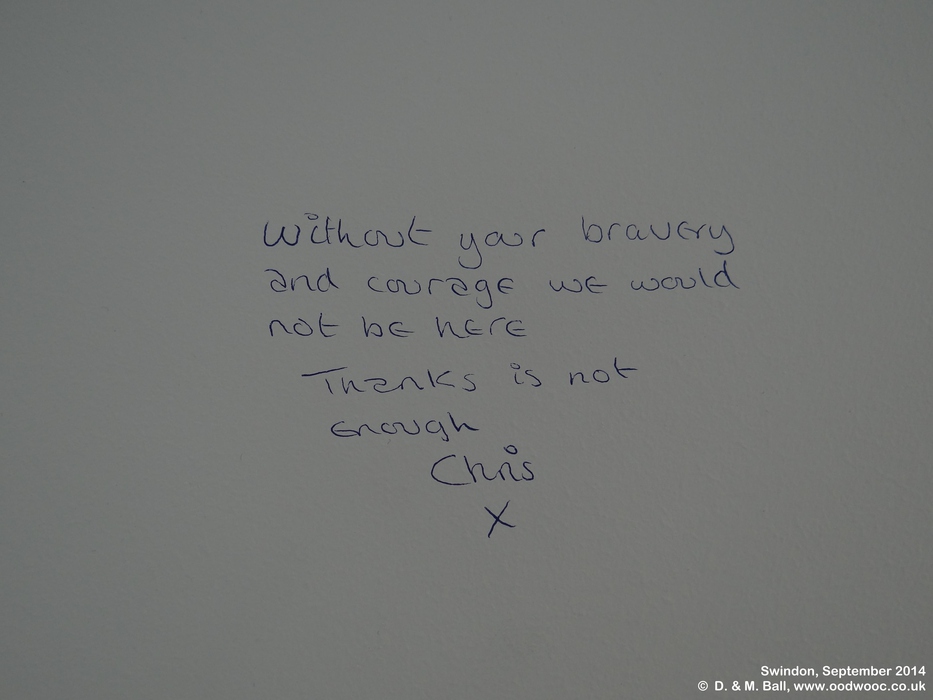 Without your bravery
and courage we would
not be here
Thanks is not
enough
Chris
X
Swindon, September 2014
© D. & M. Ball, www.oodwooc.co.uk